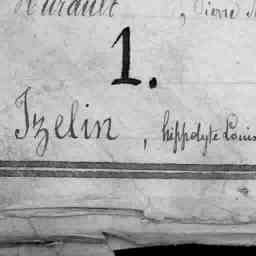 Hurault, Pierre
1.
Izelin, hippolyte Louis